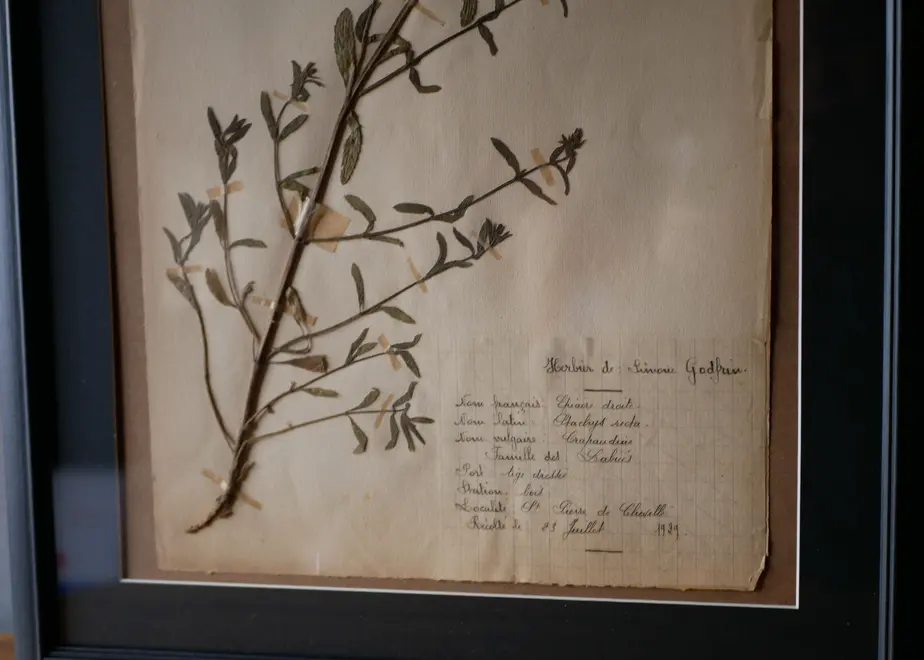 Herbier de : Simone Godfrin.
Nom français Epiaire droite.
Nom latin : Stachys recta.
Nom vulgaire : Crapaudine
Famille des Labiées
Port tige dressée
Station. bois
Localité St Pierre de
Récolté le 23 Juillet 1929.